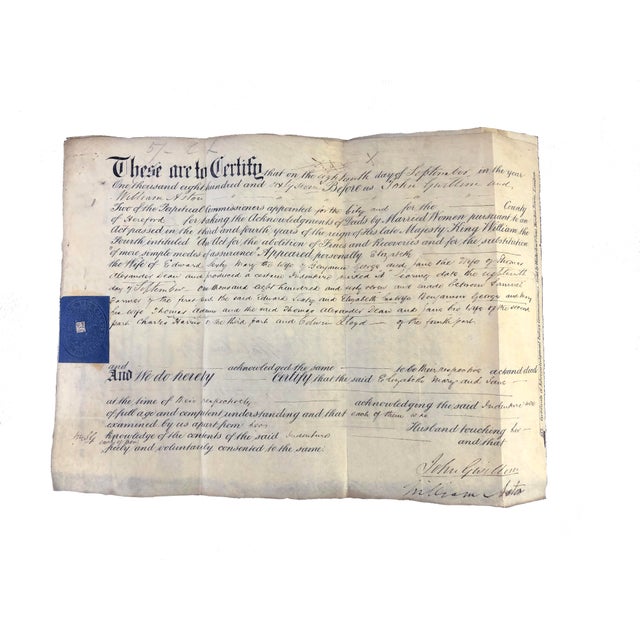 5/-
X
These are to Certify that on the eighteenth day of September in the year
One thousand eight hundred and sixty seven Before us John Gwillim and
William Aston
Two of the Perpetual Commissioners appointed for the City and for the County
of Hereford for taking the Acknowledgments of Deeds by Married Women pursuant to an
Act passed in the third and fourth years of the reign of His late Majesty King William the
Fourth intituled An Act for the abolition of Fines and Recoveries and for the substitution
of more simple modes of assurance Appeared personally Elizabeth
the Wife of Edward Mary the Wife of Benjamin George and Jane the Wife of Thomas
Alexander Dean and produced a certain Indenture marked A bearing date the eighteenth
day of September One thousand eight hundred and sixty seven and made between Samuel
Farmer of the first part the said Edward and Elizabeth his Wife Benjamin George and Mary
his wife Thomas and the said Thomas Alexander Dean and Jane his Wife of the second
part Charles Harris of the third part and Edwin Lloyd of the fourth part
and acknowledged the same to be their respective act and deeds
And We do hereby Certify that the said Elizabeth Mary and Jane
at the time of their respectively acknowledging the said Indenture were
of full age and competent understanding and that each of them were
examined by us apart from her Husband touching her
knowledge of the contents of the said Indenture and that
freely and voluntarily consented to the same.
John Gwillim
William Aston